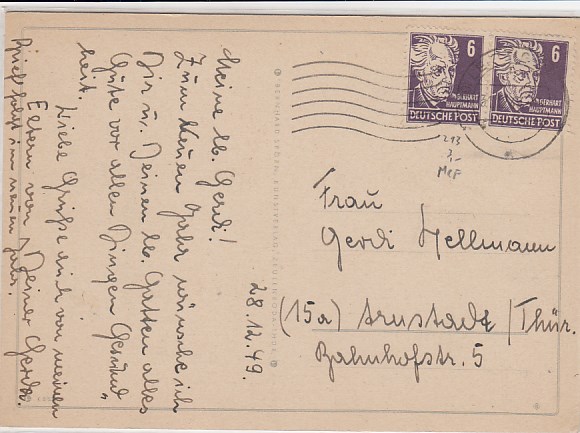 28.12.49.
Meine lb. Gerdi!
Zum Neuen Jahr wünsche ich
Dir u. Deinem lb. Gatten alles
Gute vor allen Dingen Gesund„
heit.
Liebe Grüße auch von meinen
Eltern von Deiner Gerda.
im neuen Jahr.
6
GERHART
HAUPTMANN
DEUTSCHE POST
6
GERHART
HAUPTMANN
DEUTSCHE POST
213
3,-
MeF
Frau
Gerdi Hellmann
(15a) Arnstadt / Thür.
Bahnhofstr. 5